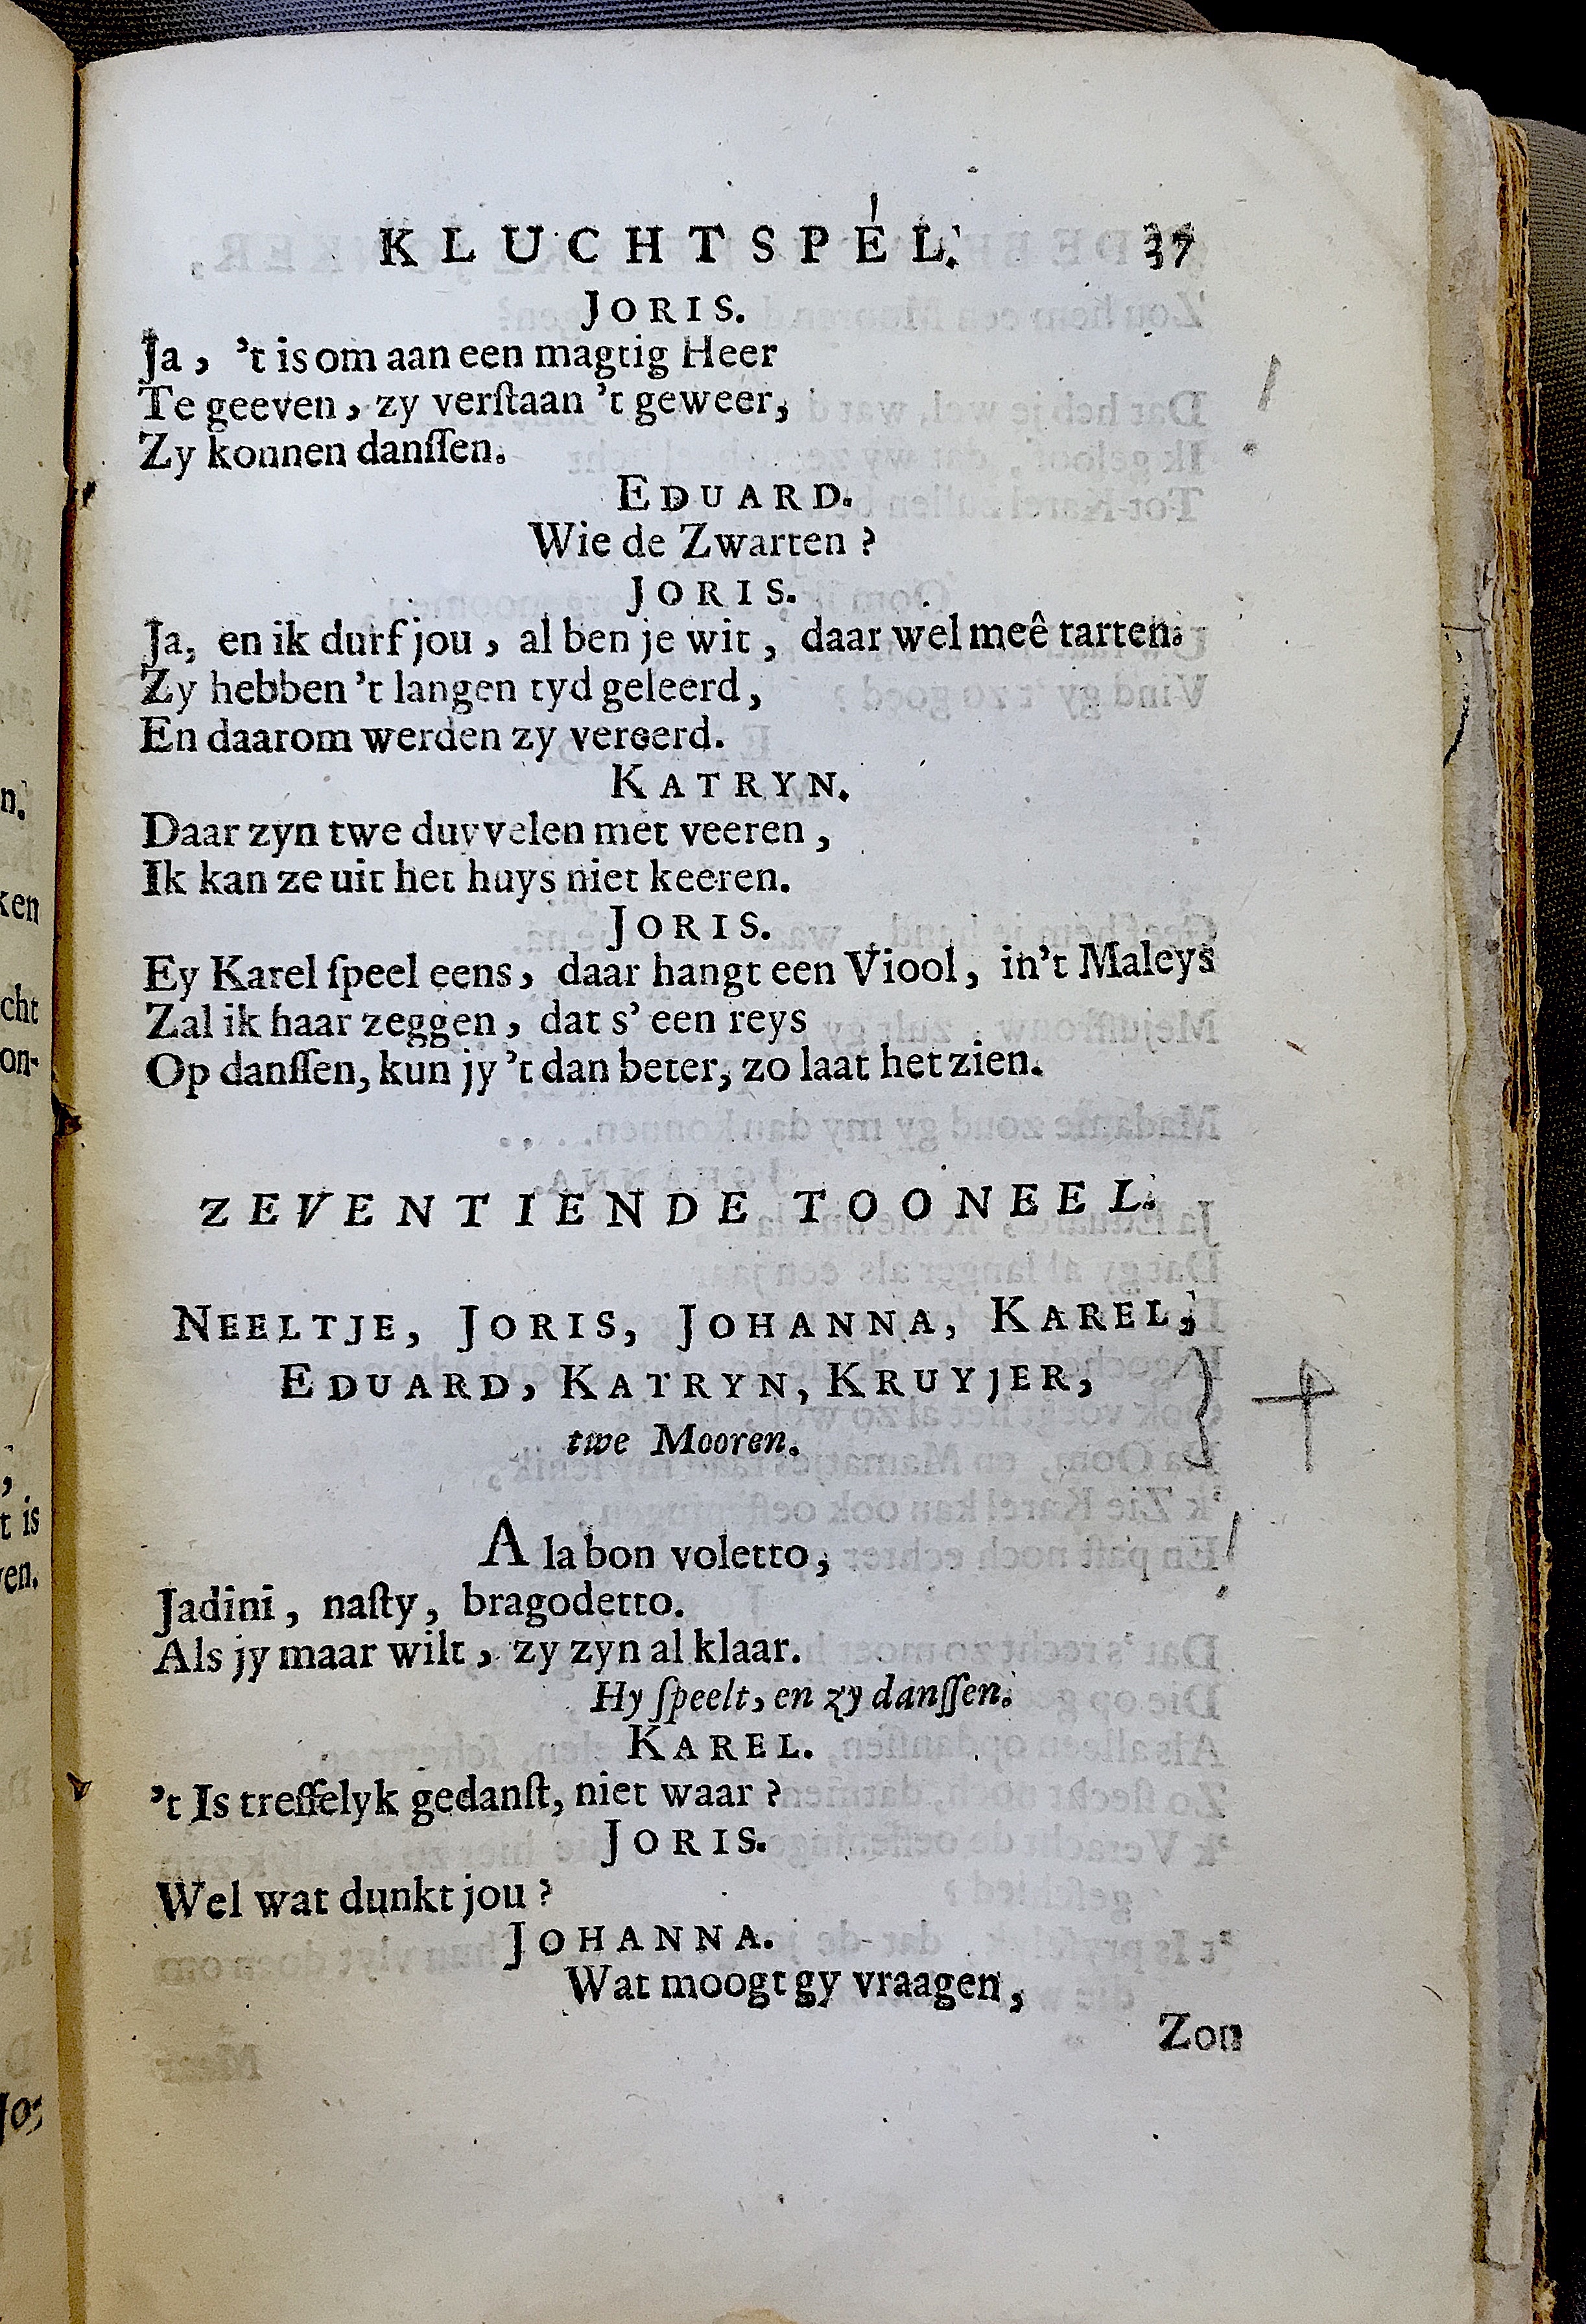 KLUCHTSPEL. 37
JORIS.
Ja, 't is om aan een magtig Heer
Te geeven, zy verſtaan 't geweer,
Zy konnen danſſen.
EDUARD.
Wie de Zwarten?
JORIS.
Ja, en ik durf jou, al ben je wit, daar wel meê tarten.
Zy hebben 't langen tyd geleerd,
En daarom werden zy vereerd.
KATRYN.
Daar zyn twe duyvelen met veeren,
Ik kan ze uit het huys niet keeren.
JORIS.
Ey Karel ſpeel eens, daar hangt een Viool, in't Maleys
Zal ik haar zeggen, dat s' een reys
Op danſſen, kun jy 't dan beter, zo laat het zien.
ZEVENTIENDE TOONEEL.
NEELTJE, JORIS, JOHANNA, KAREL,
EDUARD, KATRYN, KRUYJER,
twe Mooren.
A la bon voletto,
Jadini, naſty, bragodetto.
Als jy maar wilt, zy zyn al klaar.
Hy ſpeelt, en zy danſſen.
KAREL.
't Is treffelyk gedanſt, niet waar?
JORIS.
Wel wat dunkt jou?
JOHANNA.
Wat moogt gy vraagen,
Zon